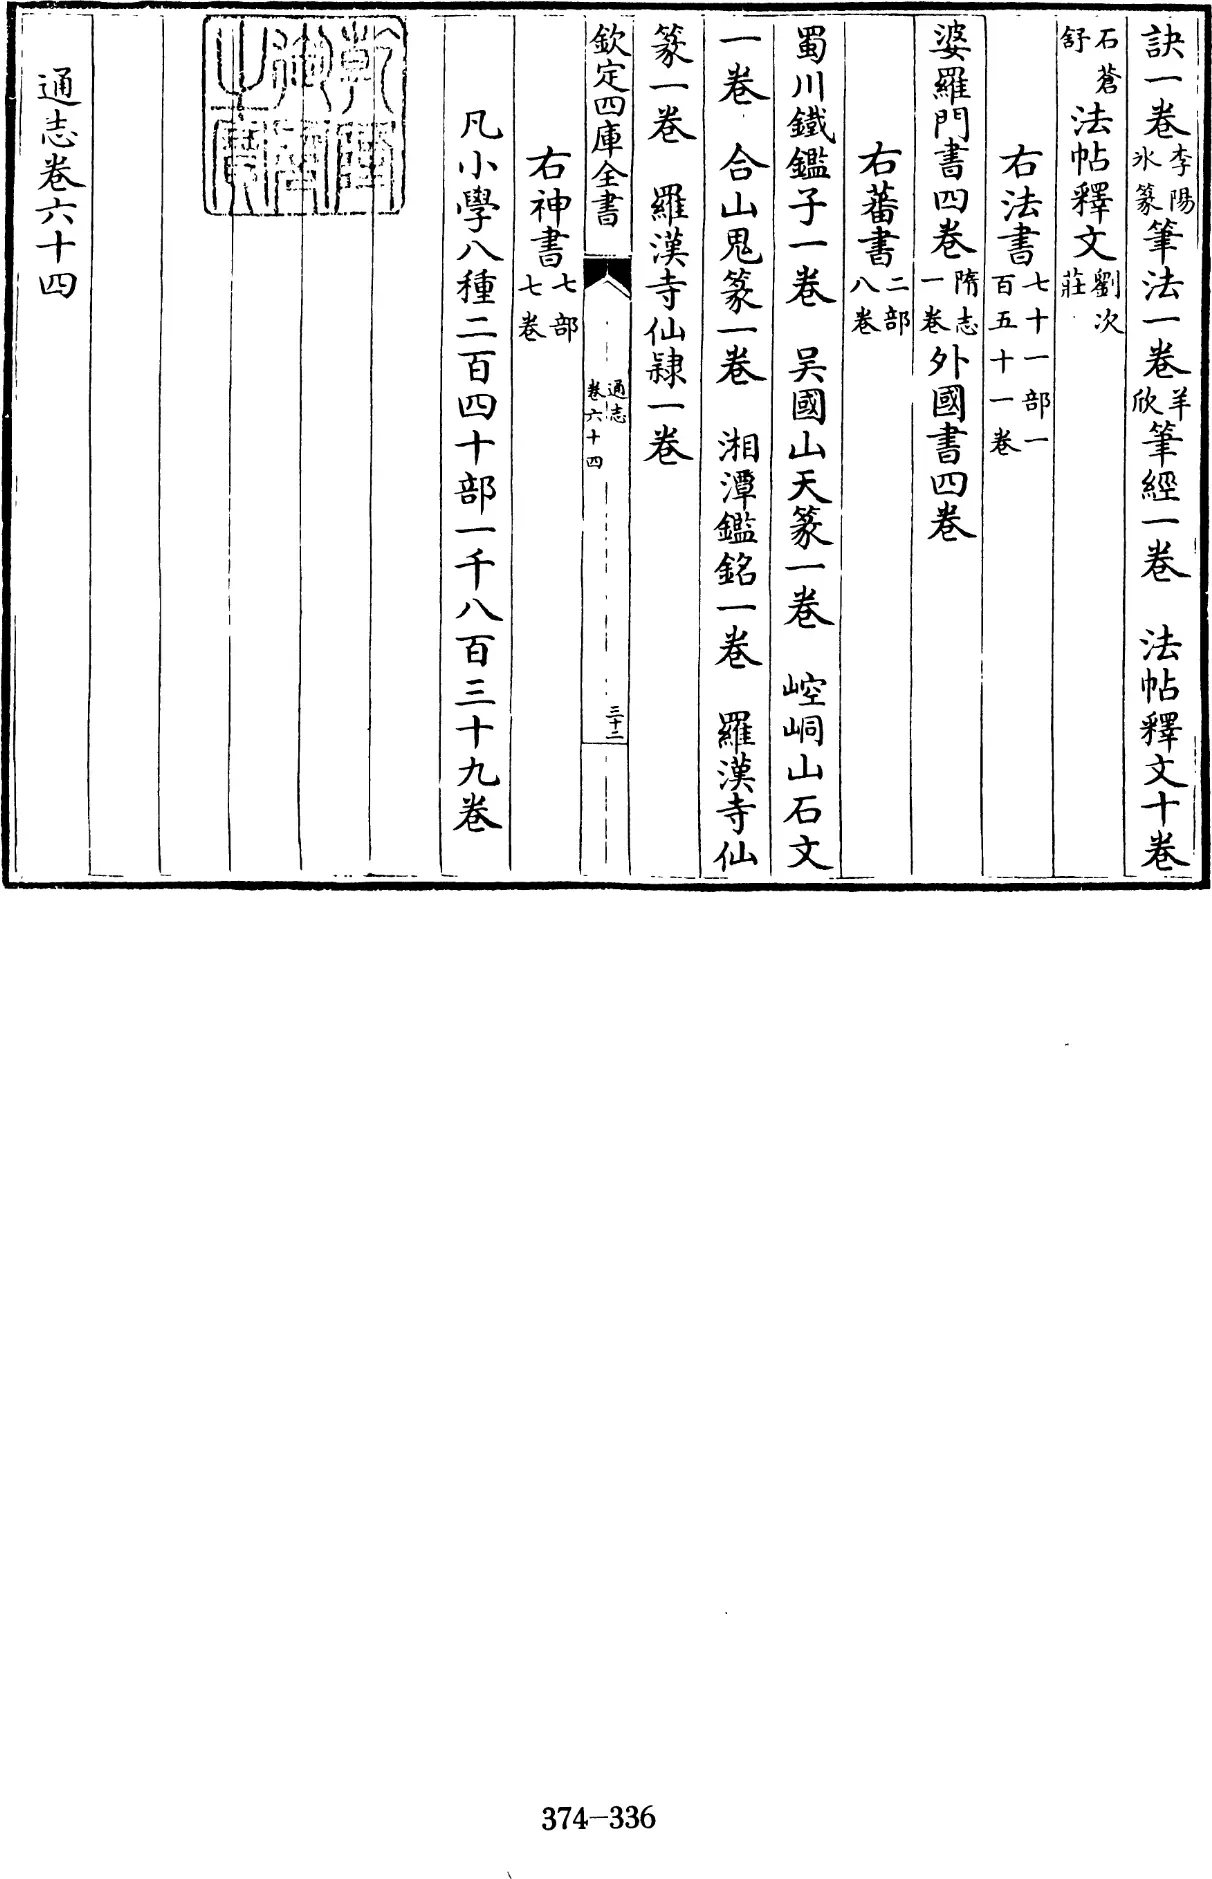 訣一卷李陽冰篆筆法一卷羊欣筆經一卷 法帖釋文十卷
石蒼舒法帖釋文劉次莊
右法書七十一部一百五十一卷
婆羅門書四卷隋志一卷外國書四卷
右蕃書二部八卷
蜀川鐵鑑子一卷 吴國山天篆一卷 崆峒山石文
一卷 合山鬼篆一卷 湘潭鑑銘一卷 羅漢寺仙
篆一卷 羅漢寺仙隸一卷
欽定四庫全書 通志卷六十四 三十二
右神書七部七卷
凡小學八種二百四十部一千八百三十九卷
通志卷六十四
374-336